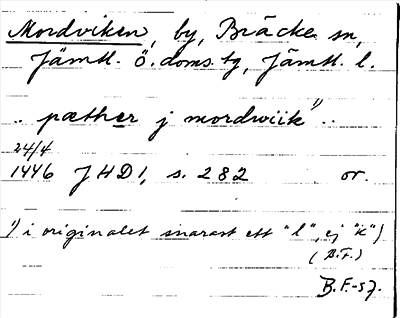 Mordviken, by, Bräcke sn,
Jämtl. Ö. doms. tg, Jämtl. l.
.. pæther j mordwiik¹⁾ ..
24/4
1446 JHD 1, s. 282 or.
¹⁾ i originalet snarast ett "l", ej "k")
(B.F.)
B.F.-57.